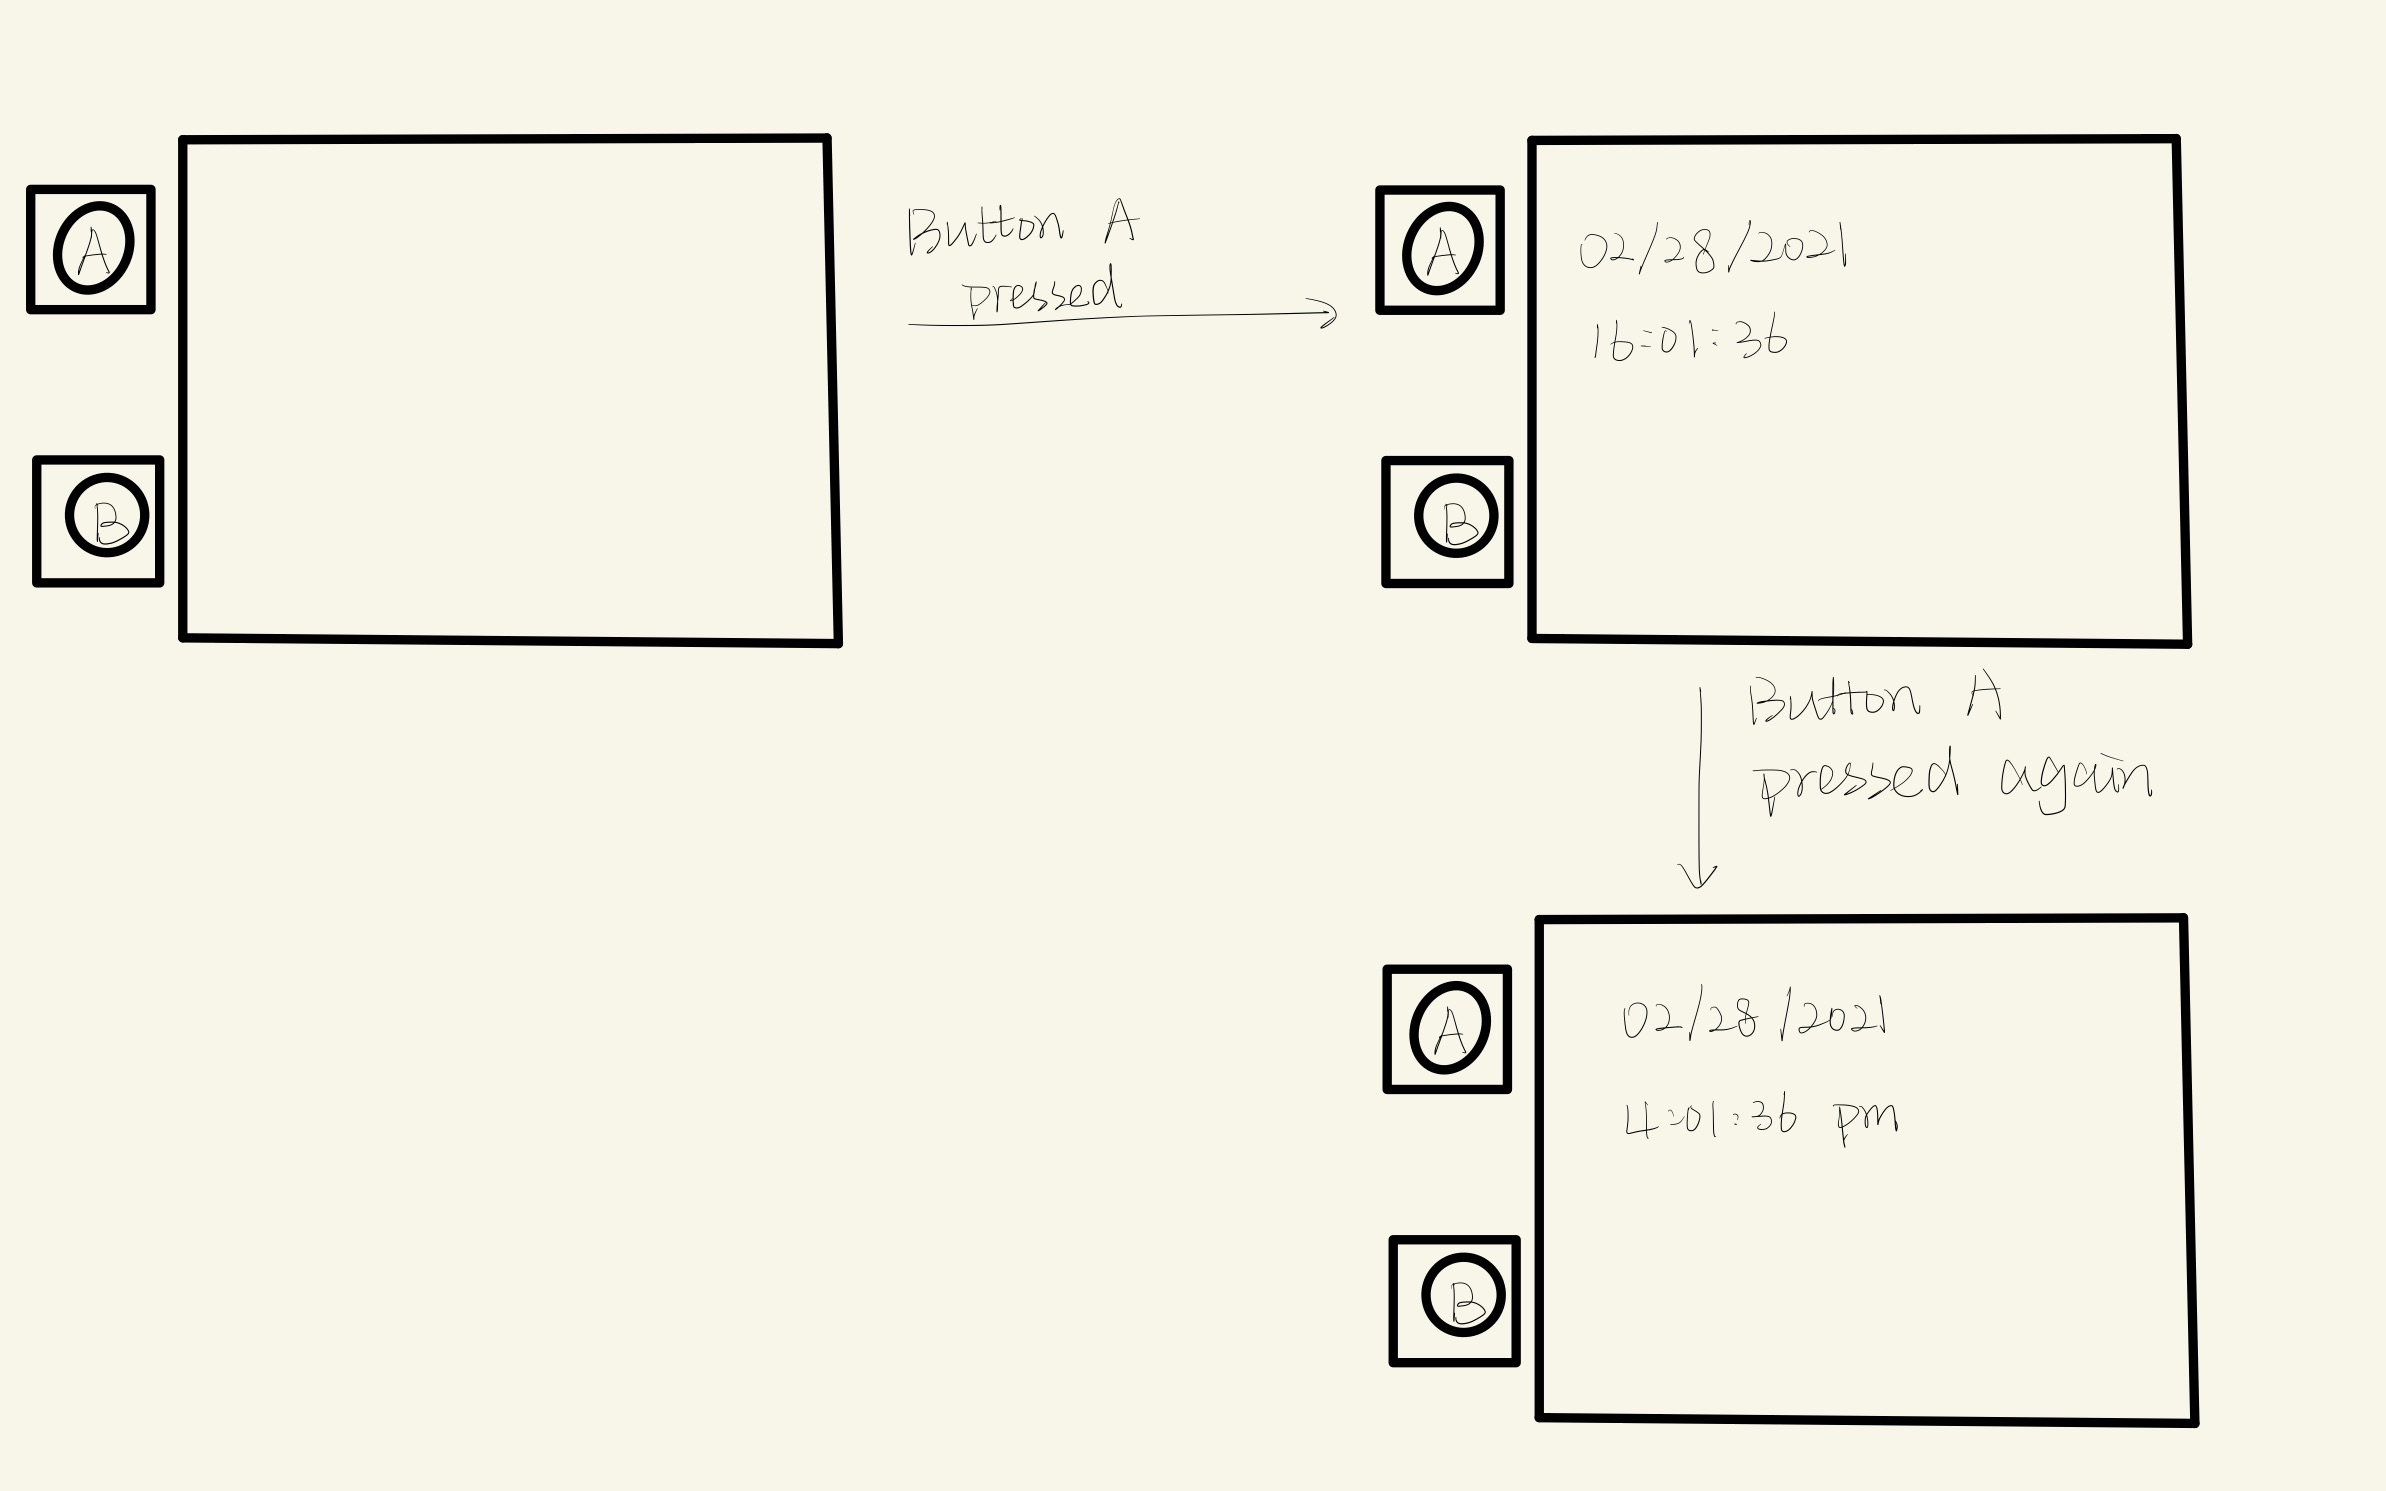 A
B
Button A
pressed
A
B
02/28/2021
16:01:36
Button A
pressed again
A
B
02/28/2021
4:01:36 pm